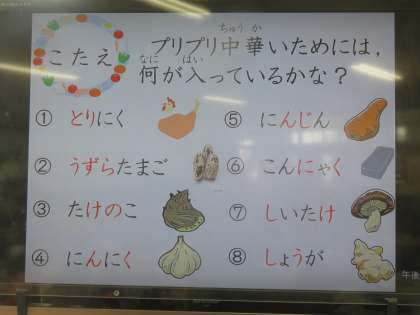 こたえ
プリプリ中華いためには、
何が入っているかな？
① とりにく
② うずらたまご
③ たけのこ
④ にんにく
⑤ にんじん
⑥ こんにゃく
⑦ しいたけ
⑧ しょうが
午後